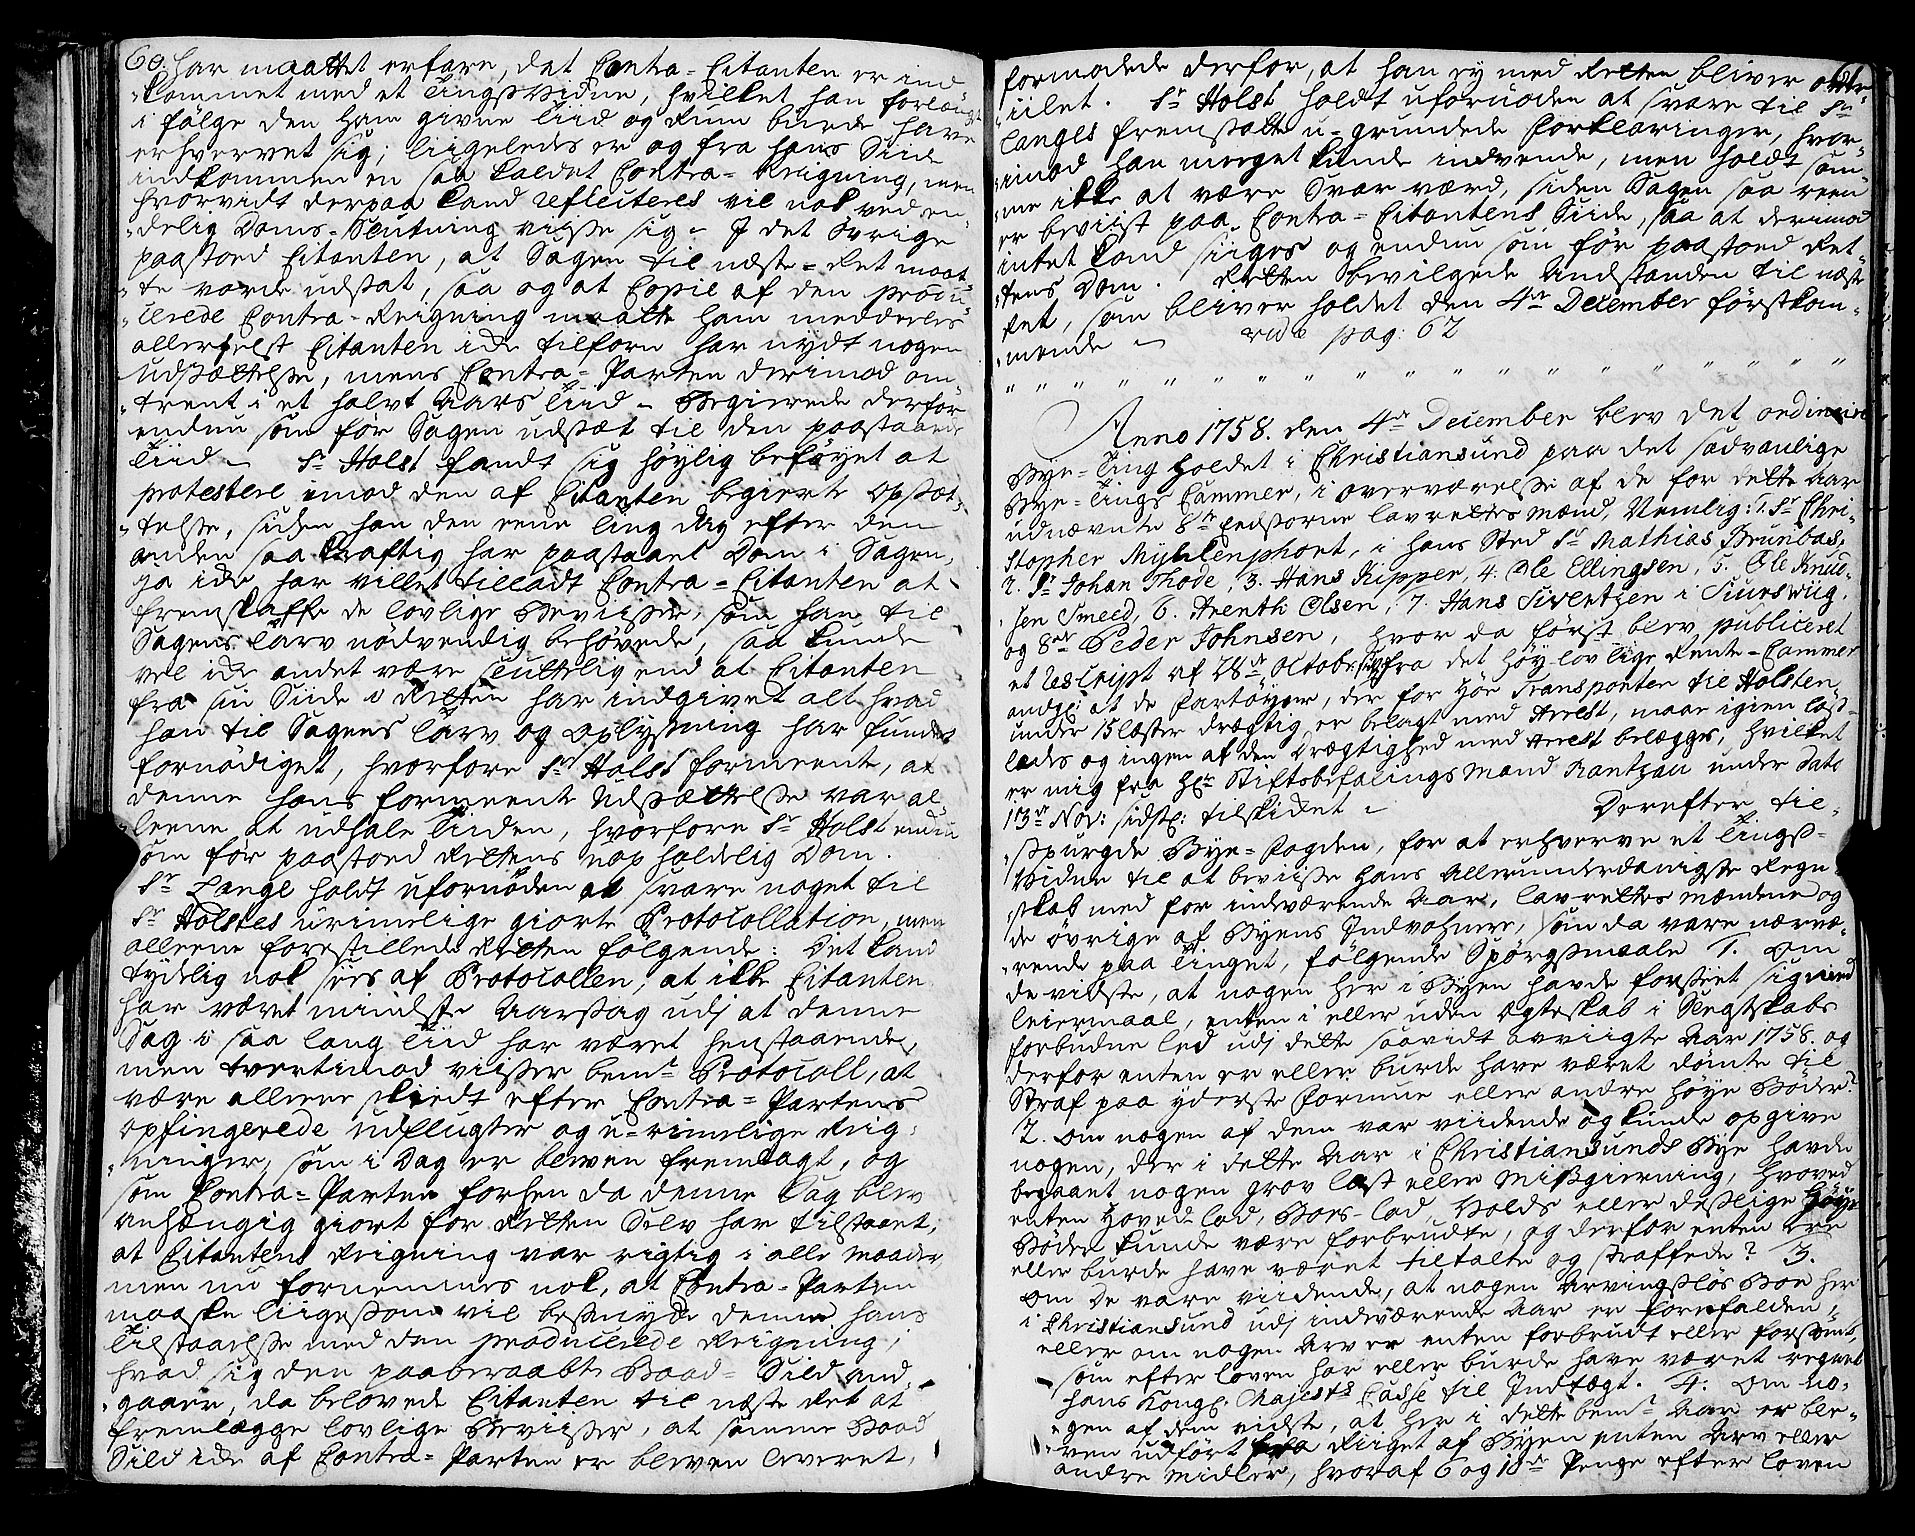 60. har maattet erfare, det Contra-Citanten er ind
kommet med et Tingsvidne, hvilket han forlængst
i følge den ham givne Tiid og Rum burde have
erhvervet sig; liigeledes er og fra hans Siide
indkommen en saa kaldet Contra-Reigning, men
hvorvidt derpaa kand reflecteres vil nok ved en-
delig Doms-Slutning viise sig. I det øvrige
paastoed Citanten, at Sagen til næste-Ret maat-
te vorde udsat, saa og at Copie af den produ-
cerede Contra-Reigning maatte ham meddeeles
allerhelst Citanten icke tilforn har nydt nogen
udsættelse, mens Contra-Parten derimod om-
trent i et halvt Aars Tiid - Begierede derfor
endnu som før Sagen udsat til den paastaaede
Tiid - Sr Holst fandt sig høylig beføyet at
protestere imod den af Citanten begierte opsæt-
telse, siden han den eene Ting dag efter den
anden saa kraftig har paastaaet Dom i Sagen,
ja icke har villet tilladt Contra-Citanten at
fremskaffe de lovlige Beviisser, som han til
Sagens Tarv nødvendig behøvede, saa kunde
vel icke andet være sluttelig end at Citanten
fra sin Siide i Retten har indgivet alt hvad
han til Sagens Tarv og oplysning har fundet
fornødiget, hvorfore Sr Holst formeente, at
denne hans formeente Udsættelse var al-
leene at udhale Tiiden, hvorfore Sr Holst endnu
som før paastoed Rettens uopholdelig Dom.
Sr Lange holdt ufornøden at svare noget til
Sr Holstes urimelige giorte Protocollation, men
alleene forestillede Retten følgende: Det kand
tydelig nok sees af Protocollen, at ikke Citanten
har været mindste Aarsag udj at denne
Sag i saa lang Tiid har været henstaaende,
men tvertimod viisser bemte Protocoll, at
være alleene skeedt efter Contra-Partens
opfingerede udflugter og u-rimelige Reig-
ninger, som i Dag er bleven fremlagt, og
som Contra-Parten forhen da denne Sag blev
anhængig giort for Retten Selv har tilstaaet,
at Citantens Reigning var rigtig i alle maader
men nu fornemmes nok, at Contra-Parten
maaske liigesom vil besmykke denne hans
Tilstaaelse med den producerede Reigning;
hvad sig den paaberaabte Baad-Sild and-
gaaer, da belovede Citanten til næste Ret at
fremlægge lovlige Beviisser, at samme Baad
Sild icke af Contra-Parten er bleven leveret,
61.
formodede derfor, at han ey med Retten bliver over-
iilet. Sr Holst holdt ufornøden at svare til Sr
Langes fremsatte u-grundede Forklaringer, hvor-
imod han meget kunde indvende, men holdt sam-
me ikke at være Svar værd, siden Sagen saa reen
er beviist paa Contra-Citantens Siide, saa at derimod
intet kand siiges og endnu som før paastoed Ret-
tens Dom. Retten bevilgede Anstanden til næste
Ret, som bliver holdet den 4de December førstkom-
mende - vide pag: 62
Anno 1758. den 4de December blev det ordinaire
Bye-Ting holdet i Christiansund paa det sædvanlige
Bye-Tings Cammer, i overværelse af de for dette Aar
udnævnte 8te Eedsorne lavrettes mænd, Nemlig: 1. Sr Chri-
stopher Myhlenphort, i hans Sted Sr Mathias Brunbas,
2. Sr Johan Thode, 3. Hans Kipper, 4. Ole Ellingsen, 5. Ole Knud-
sen Smeed, 6. Arenth Olsen, 7. Hans Sivertzen i Suursviig,
og 8de Peder Johnsen, hvor da først blev publiceret
et Rescript af 28de Octobr fra det høylovlige Rente-Cammer
andg: at de Fartøyer, der for Høe Transporten til Holsten
under 15 læster drægtig er belagt med Arrest, maae igien løs-
lades og ingen af den Drægtighed med Arrest belægges, hvilket
er mig fra Hr Stiftsbefalings Mand Rantzau under Dato
13de Nov: sidstl: tilskicket - Derefter til-
spurgde Bye-Fogden, for at erhverve et Tings-
Vidne til at beviise hans Allerunderdanigste Regn-
skab med for indværende Aar, lavrettes mændene og
de øvrige af Byens Indvohnere, som da vare nærvæ-
rende paa Tinget, følgende Spørgsmaale 1. Om
de vidste, at nogen her i Byen havde forseet sig med
leiermaal, enten i eller uden Ægteskab i Slegtskabs
forbudne led udj dette saavidt avviigte Aar 1758. og
derfor enten er eller burde have været dømte til
Straf paa yderste formue eller andre høye Bøder?
2. Om nogen af dem var viidende og kunde opgive
nogen, der i dette Aar i Christiansunds Bye havde
begaaet nogen grov last eller Misgierning, hvorved
enten Hoved-lod, Boes-lod, Volds eller deslige høye
Bøder kunde være forbrudte, og derfor enten ere
eller burde have været tiltalte og straffede? 3.
Om De vare viidende, at nogen Arvingsløs Boe her
i Christiansund udj indværende Aar er forefalden,
eller om nogen Arv er enten forbrudt eller forsømt,
som efter loven har eller burde have været regnet
hans Kongl: Mayests Casse til Indtægt. 4. Om no-
gen af dem vidste, at her i dette bemte Aar er ble-
ven udført fra Riiget af Byen enten Arv eller
andre midler, hvoraf 6 og 10de Penge efter loven